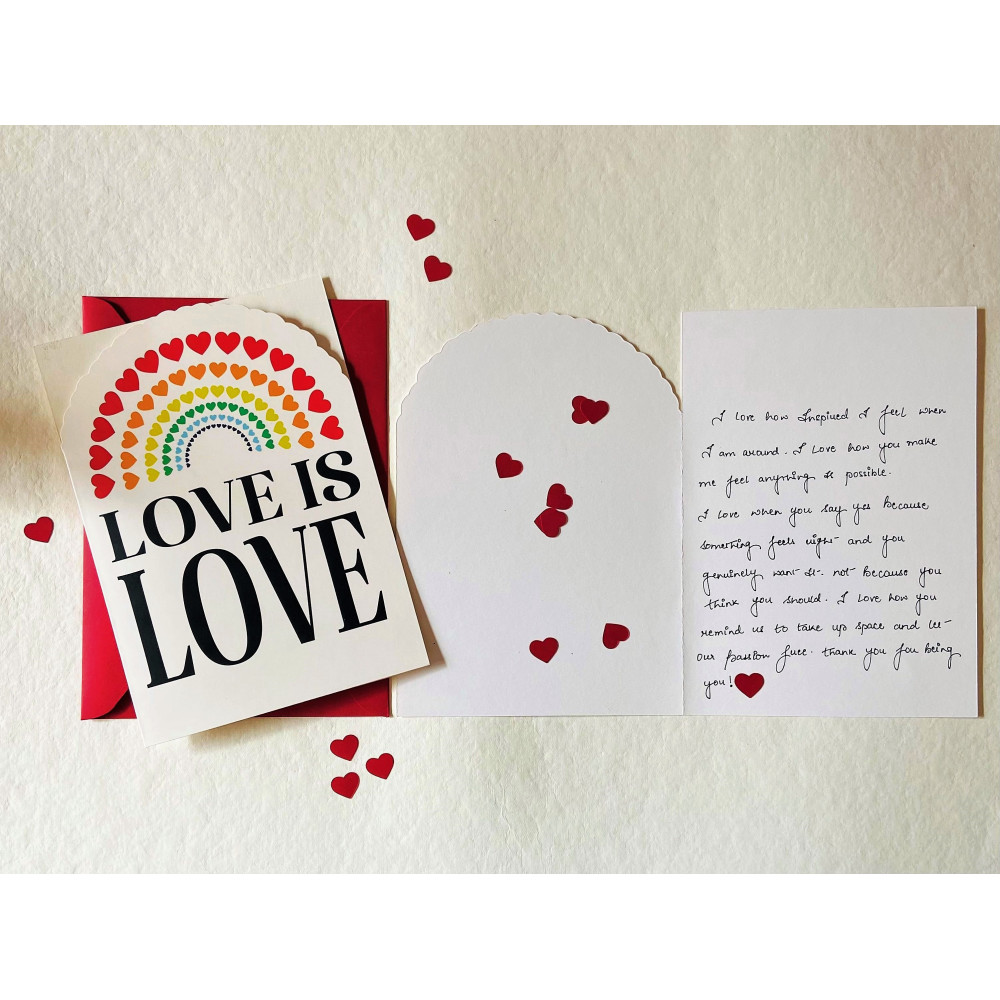 LOVE IS
LOVE
I love how Inspired I feel when
I am around. I love how you make
me feel anything is possible.
I love when you say yes because
something feels right and you
genuinely want it. not because you
think you should. I love how you
remind us to take up space and let
our passion fuel. thank you for being
you!